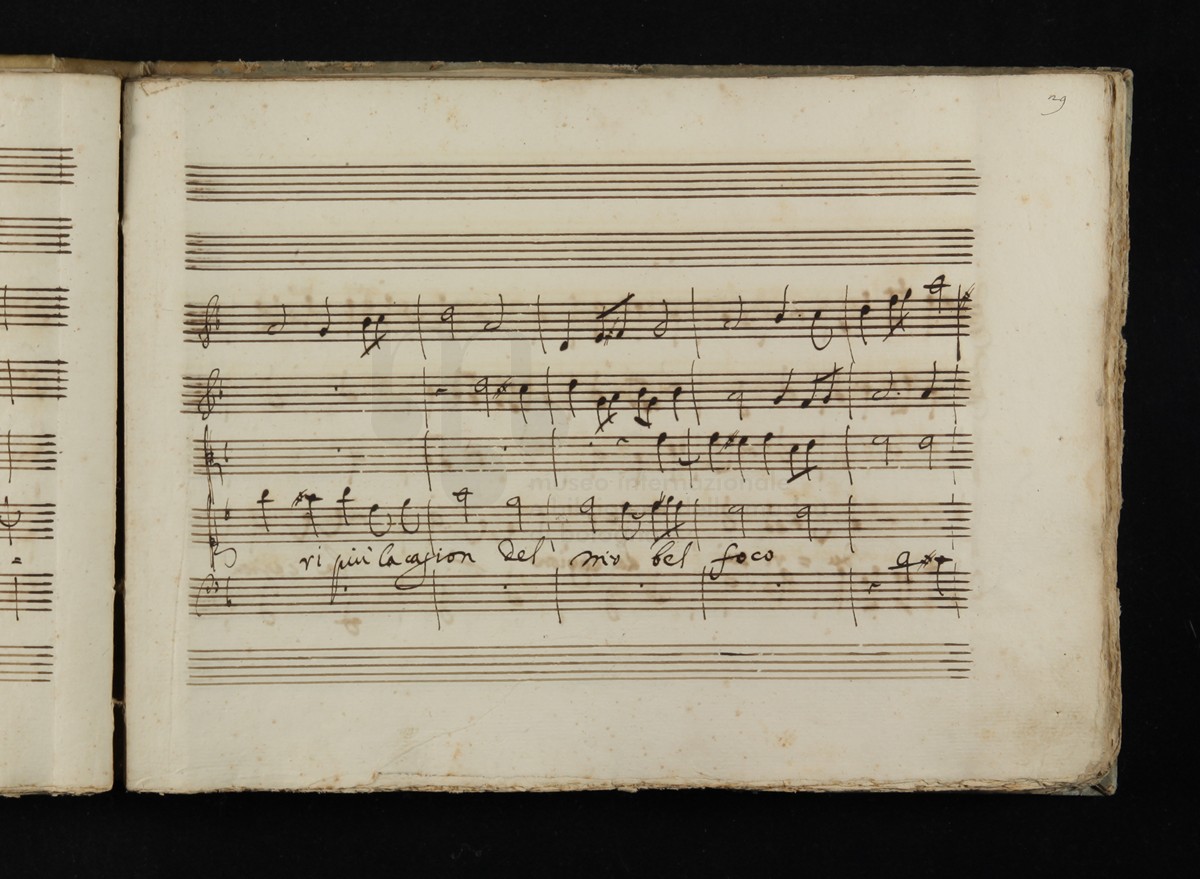 29
museo internazionale
ri più la cagion del mio bel foco